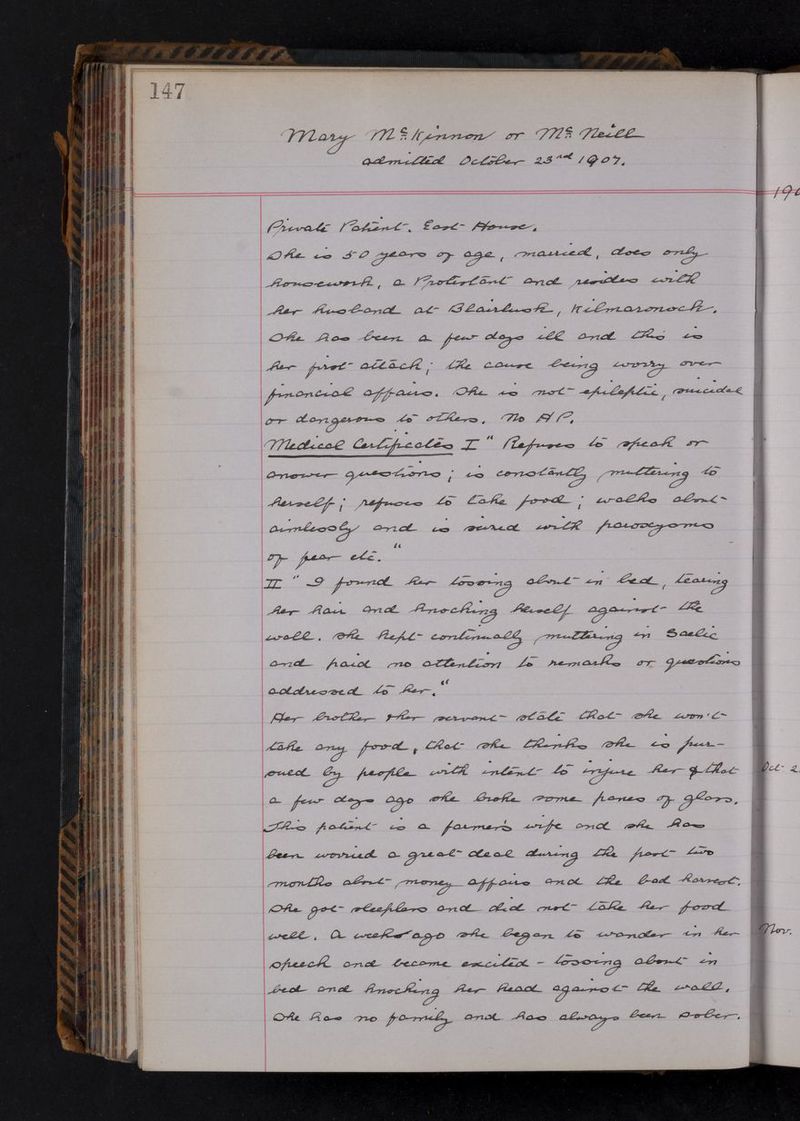 147
Mary McKinnon or McNeill
admitted October 23rd 1907.
190
Private Patient. East House.
She is 50 years of age, married, does only
housework, a Protestant and resides with
her husband at Blairlusk, Kilmaronock.
She has been a few days ill and this is
her first attack; the cause being worry over
financial affairs. She is not epileptic, suicidal
or dangerous to others. No H P.
Medical Certificates I "Refuses to speak or
answer questions; is constantly muttering to
herself; refuses to take food; walks about
aimlessly and is seized with paroxysms
of fear etc."
II "I found her tossing about in bed, tearing
her hair and knocking herself against the
wall. She kept continually muttering in Gaelic
and paid no attention to remarks or questions
addressed to her."
Her brother & her servant state that she won't
take any food, that she thinks she is pur-
sued by people with intent to injure her & that
Oct. 2
a few days ago she broke some panes of glass.
This patient is a farmer's wife and she has
been worried a great deal during the past two
months about money affairs and the bad harvest.
She got sleepless and did not take her food
well. A week ago she began to wander in her
Nov.
speech and became excited - tossing about in
bed and knocking her head against the wall.
She has no family and has always been sober.